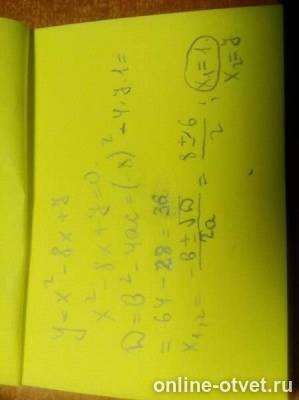 y = x² - 8x + 7
x² - 8x + 7 = 0.
D = B² - 4ac = (-8)² - 4·7·1 =
= 64 - 28 = 36
x₁,₂ = (-B ± √D) / 2a = (8 ± 6) / 2 ; x₁ = 1.
x₂ = 7
online-otvet.ru